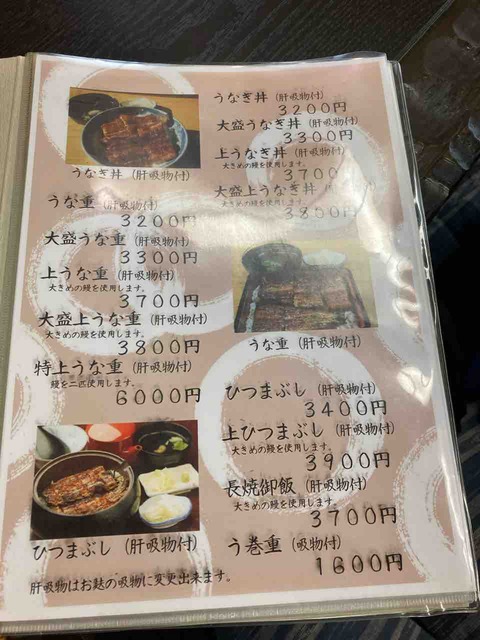 うなぎ丼（肝吸物付）
3200円
大盛うなぎ丼（肝吸物付）
3300円
上うなぎ丼（肝吸物付）
大きめの鰻を使用します。
3700円
大盛上うなぎ丼（肝吸物付）
大きめの鰻を使用します。
3800円
うなぎ丼（肝吸物付）
うな重（肝吸物付）
3200円
大盛うな重（肝吸物付）
3300円
上うな重（肝吸物付）
大きめの鰻を使用します。
3700円
大盛上うな重（肝吸物付）
大きめの鰻を使用します。
3800円
特上うな重（肝吸物付）
鰻を二匹使用します。
6000円
うな重（肝吸物付）
ひつまぶし（肝吸物付）
3400円
上ひつまぶし（肝吸物付）
大きめの鰻を使用します。
3900円
長焼御飯（肝吸物付）
大きめの鰻を使用します。
3700円
う巻重（吸物付）
1600円
ひつまぶし（肝吸物付）
肝吸物はお麩の吸物に変更出来ます。